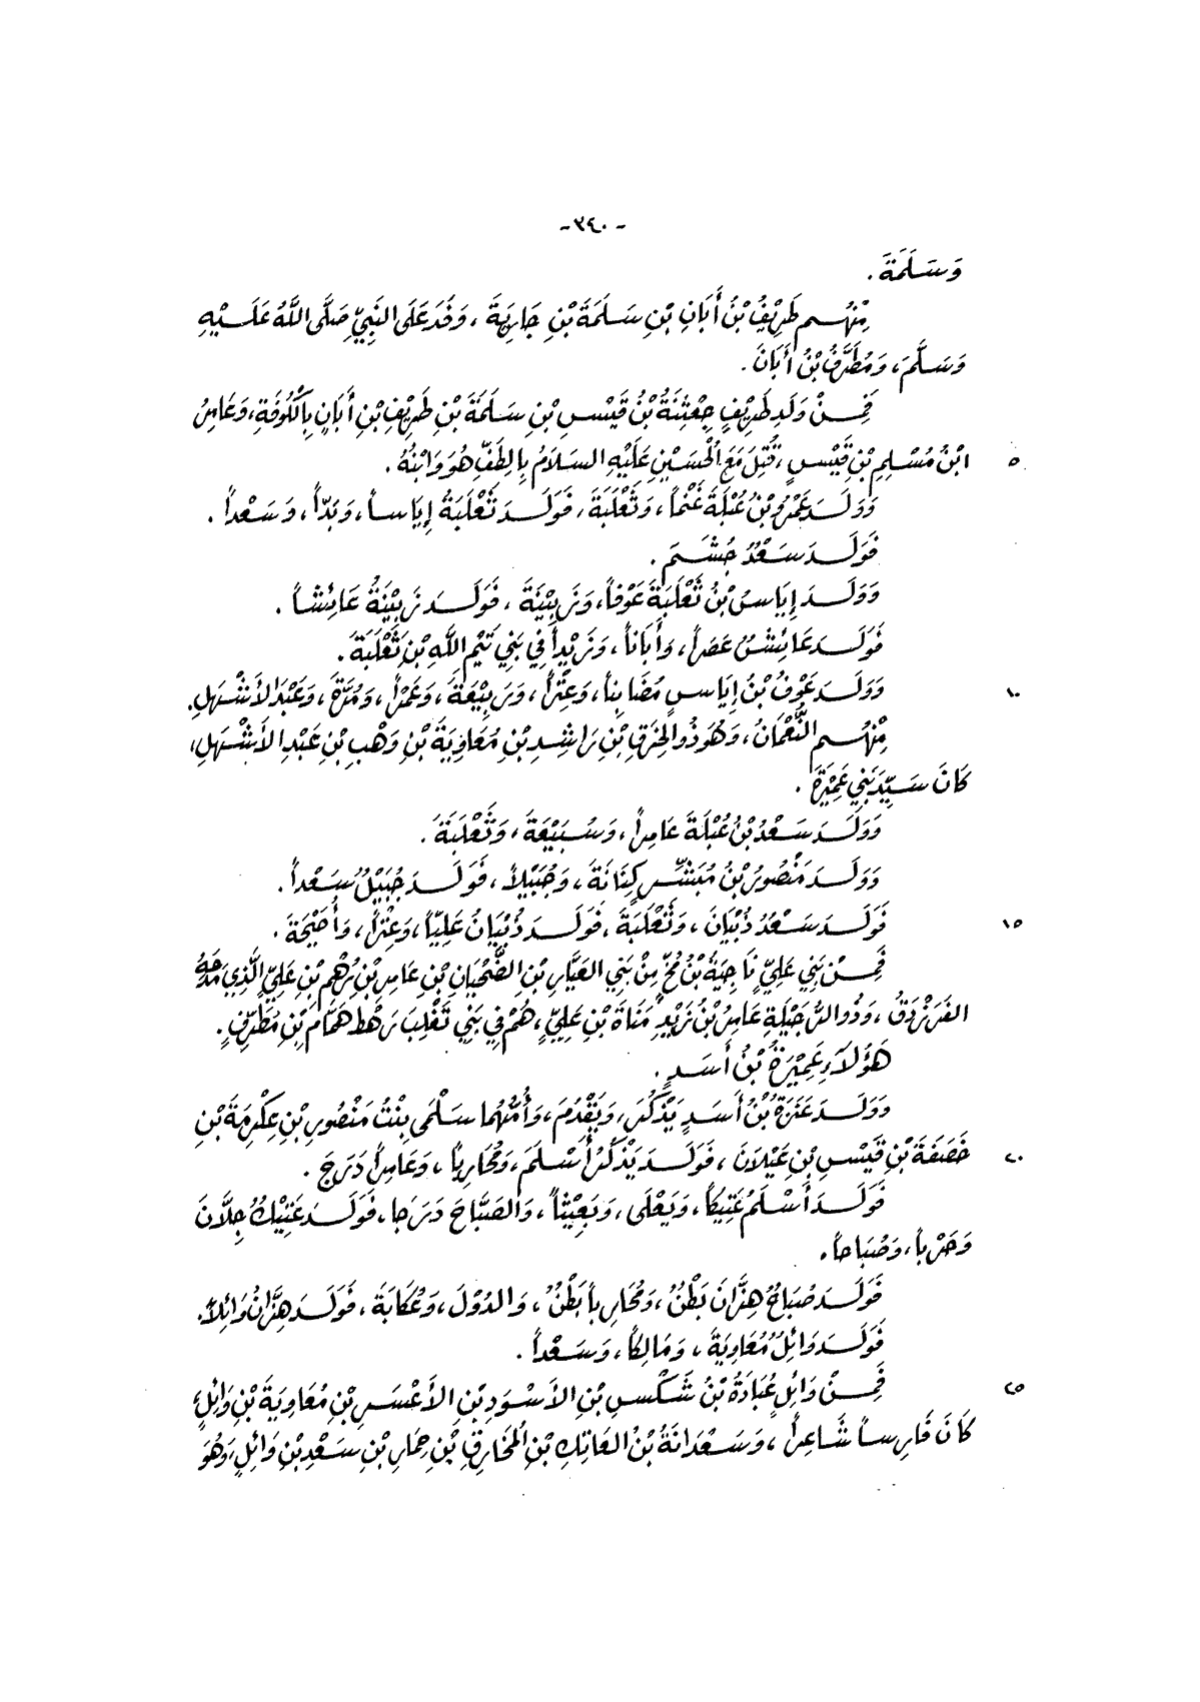 - ٣٤٠ -
وَسَلَمَةَ .
مِنْهُم طَرِيْفُ بْنُ أَبَانِ بْنِ سَلَمَةَ بْنِ جَارِيَةَ ، وَفَدَ عَلَى النَّبِيِّ صَلَّى اللَّهُ عَلَيْهِ
وَسَلَّمَ ، وَمُطَرِّفُ بْنُ أَبَانَ .
فَمِنْ وَلَدِ طَرِيْفٍ جِعْثِنَةُ بْنُ قَيْسِ بْنِ سَلَمَةَ بْنِ طَرِيْفِ بْنِ أَبَانٍ بِالْكُوفَةِ ، وَعَامِرُ
٥ ابْنُ مُسْلِمِ بْنِ قَيْسٍ ، قُتِلَ مَعَ الْحُسَيْنِ عَلَيْهِ السَلَامُ بِالطَفِّ هُوَ وَابْنُهُ .
وَوَلَدَ عَمْرُو بْنُ عُبْلَةَ غَنْماً ، وَثَعْلَبَةَ ، فَوَلَدَ ثَعْلَبَةُ إِيَاساً ، وَبَدّاً ، وَسَعْداً .
فَوَلَدَ سَعْدٌ جُشَمَ .
وَوَلَدَ إِيَاسُ بْنُ ثَعْلَبَةَ عَوْفاً ، وَزَبِيْنَةَ ، فَوَلَدَ زَبِيْنَةُ عَائِشاً .
فَوَلَدَ عَائِشُ عَصَراً ، وَأَبَاناً ، وَزَيْداً فِي بَنِي تَيْمِ اللَّهِ بْنِ ثَعْلَبَةَ .
١٠ وَوَلَدَ عَوْفُ بْنُ إِيَاسٍ مُضَابِناً ، وَعِتْراً ، وَرَبِيْعَةَ ، وَعَمْراً ، وَمُرَّةَ ، وَعَبْدَ الأَشْهَلِ .
مِنْهُم النُّعْمَانُ ، وَهُوَ ذُو الخِرَقِ بْنِ رَاشِدِ بْنِ مُعَاوِيَةَ بْنِ وَهْبِ بْنِ عَبْدِ الأَشْهَلِ ،
كَانَ سَيِّدَ بَنِي عَمِيْرَةَ .
وَوَلَدَ سَعْدُ بْنُ عُبْلَةَ عَامِراً ، وَسُبَيْعَةَ ، وَثَعْلَبَةَ .
وَوَلَدَ مَنْصُورُ بْنُ مُبَشِّرٍ كِنَانَةَ ، وَجُبَيْلاً ، فَوَلَدَ جُبَيْلٌ سَعْداً .
١٥ فَوَلَدَ سَعْدٌ ذُبْيَانَ ، وَثَعْلَبَةَ ، فَوَلَدَ ذُبْيَانُ عَلِيّاً ، وَعِتْراً ، وَأُحَيْحَةَ .
فَمِنْ بَنِي عَلِيٍّ نَاجِيَةُ بْنُ مُخٍّ مِنْ بَنِي العَيَّارِ بْنِ الضَّحْيَانِ بْنِ عَامِرِ بْنِ رُهْمِ بْنِ عَلِيٍّ الَّذِي مَدَحَهُ
الفَرَزْدَقُ ، وَذُو الرُّجَيْلَةِ عَامِرُ بْنُ زَيْدِ مَنَاةَ بْنِ عَلِيٍّ ، هُمْ فِي بَنِي تَغْلِبَ رَهْط هَمَّامِ بْنِ مُطَرِّفٍ .
هَؤُلَاءِ عَمِيْرَةُ بْنُ أَسَدٍ .
وَوَلَدَ عَنَزَةُ بْنُ أَسَدٍ يَذْكُرَ ، وَيَقْدُمَ ، وَأُمُّهُمَا سَلْمَى بِنْتُ مَنْصُورِ بْنِ عِكْرِمَةَ بْنِ
٢٠ خَصَفَةَ بْنِ قَيْسِ بْنِ عَيْلَانَ ، فَوَلَدَ يَذْكُرُ أَسْلَمَ ، وَمُحَارِباً ، وَعَامِراً دَرَجَ .
فَوَلَدَ أَسْلَمُ عَتِيْكاً ، وَيَعْلَى ، وَبَعِيْثاً ، وَالصَبَّاحَ دَرَجَا ، فَوَلَدَ عَتِيْكُ جِلَّانَ
وَحَرْباً ، وَصُبَاحاً .
فَوَلَدَ صُبَاحُ هِزَّانَ بَطْنٌ ، وَمُحَارِباً بَطْنٌ ، وَالدُوْلَ ، وَعُكَابَةَ ، فَوَلَدَ هِزَّانُ وَائِلاً .
فَوَلَدَ وَائِلٌ مُعَاوِيَةَ ، وَمَالِكاً ، وَسَعْداً .
٢٥ فَمِنْ وَائِلٍ عُبَادَةُ بْنُ شَكْسِ بْنِ الأَسْوَدِ بْنِ الأَعْسَرِ بْنِ مُعَاوِيَةَ بْنِ وَائِلٍ
كَانَ فَارِساً شَاعِراً ، وَسَعْدَانَةُ بْنُ العَاتِكِ بْنِ المُخَارِقِ بْنِ حِمَارِ بْنِ سَعْدِ بْنِ وَائِلٍ ، وَهُوَ